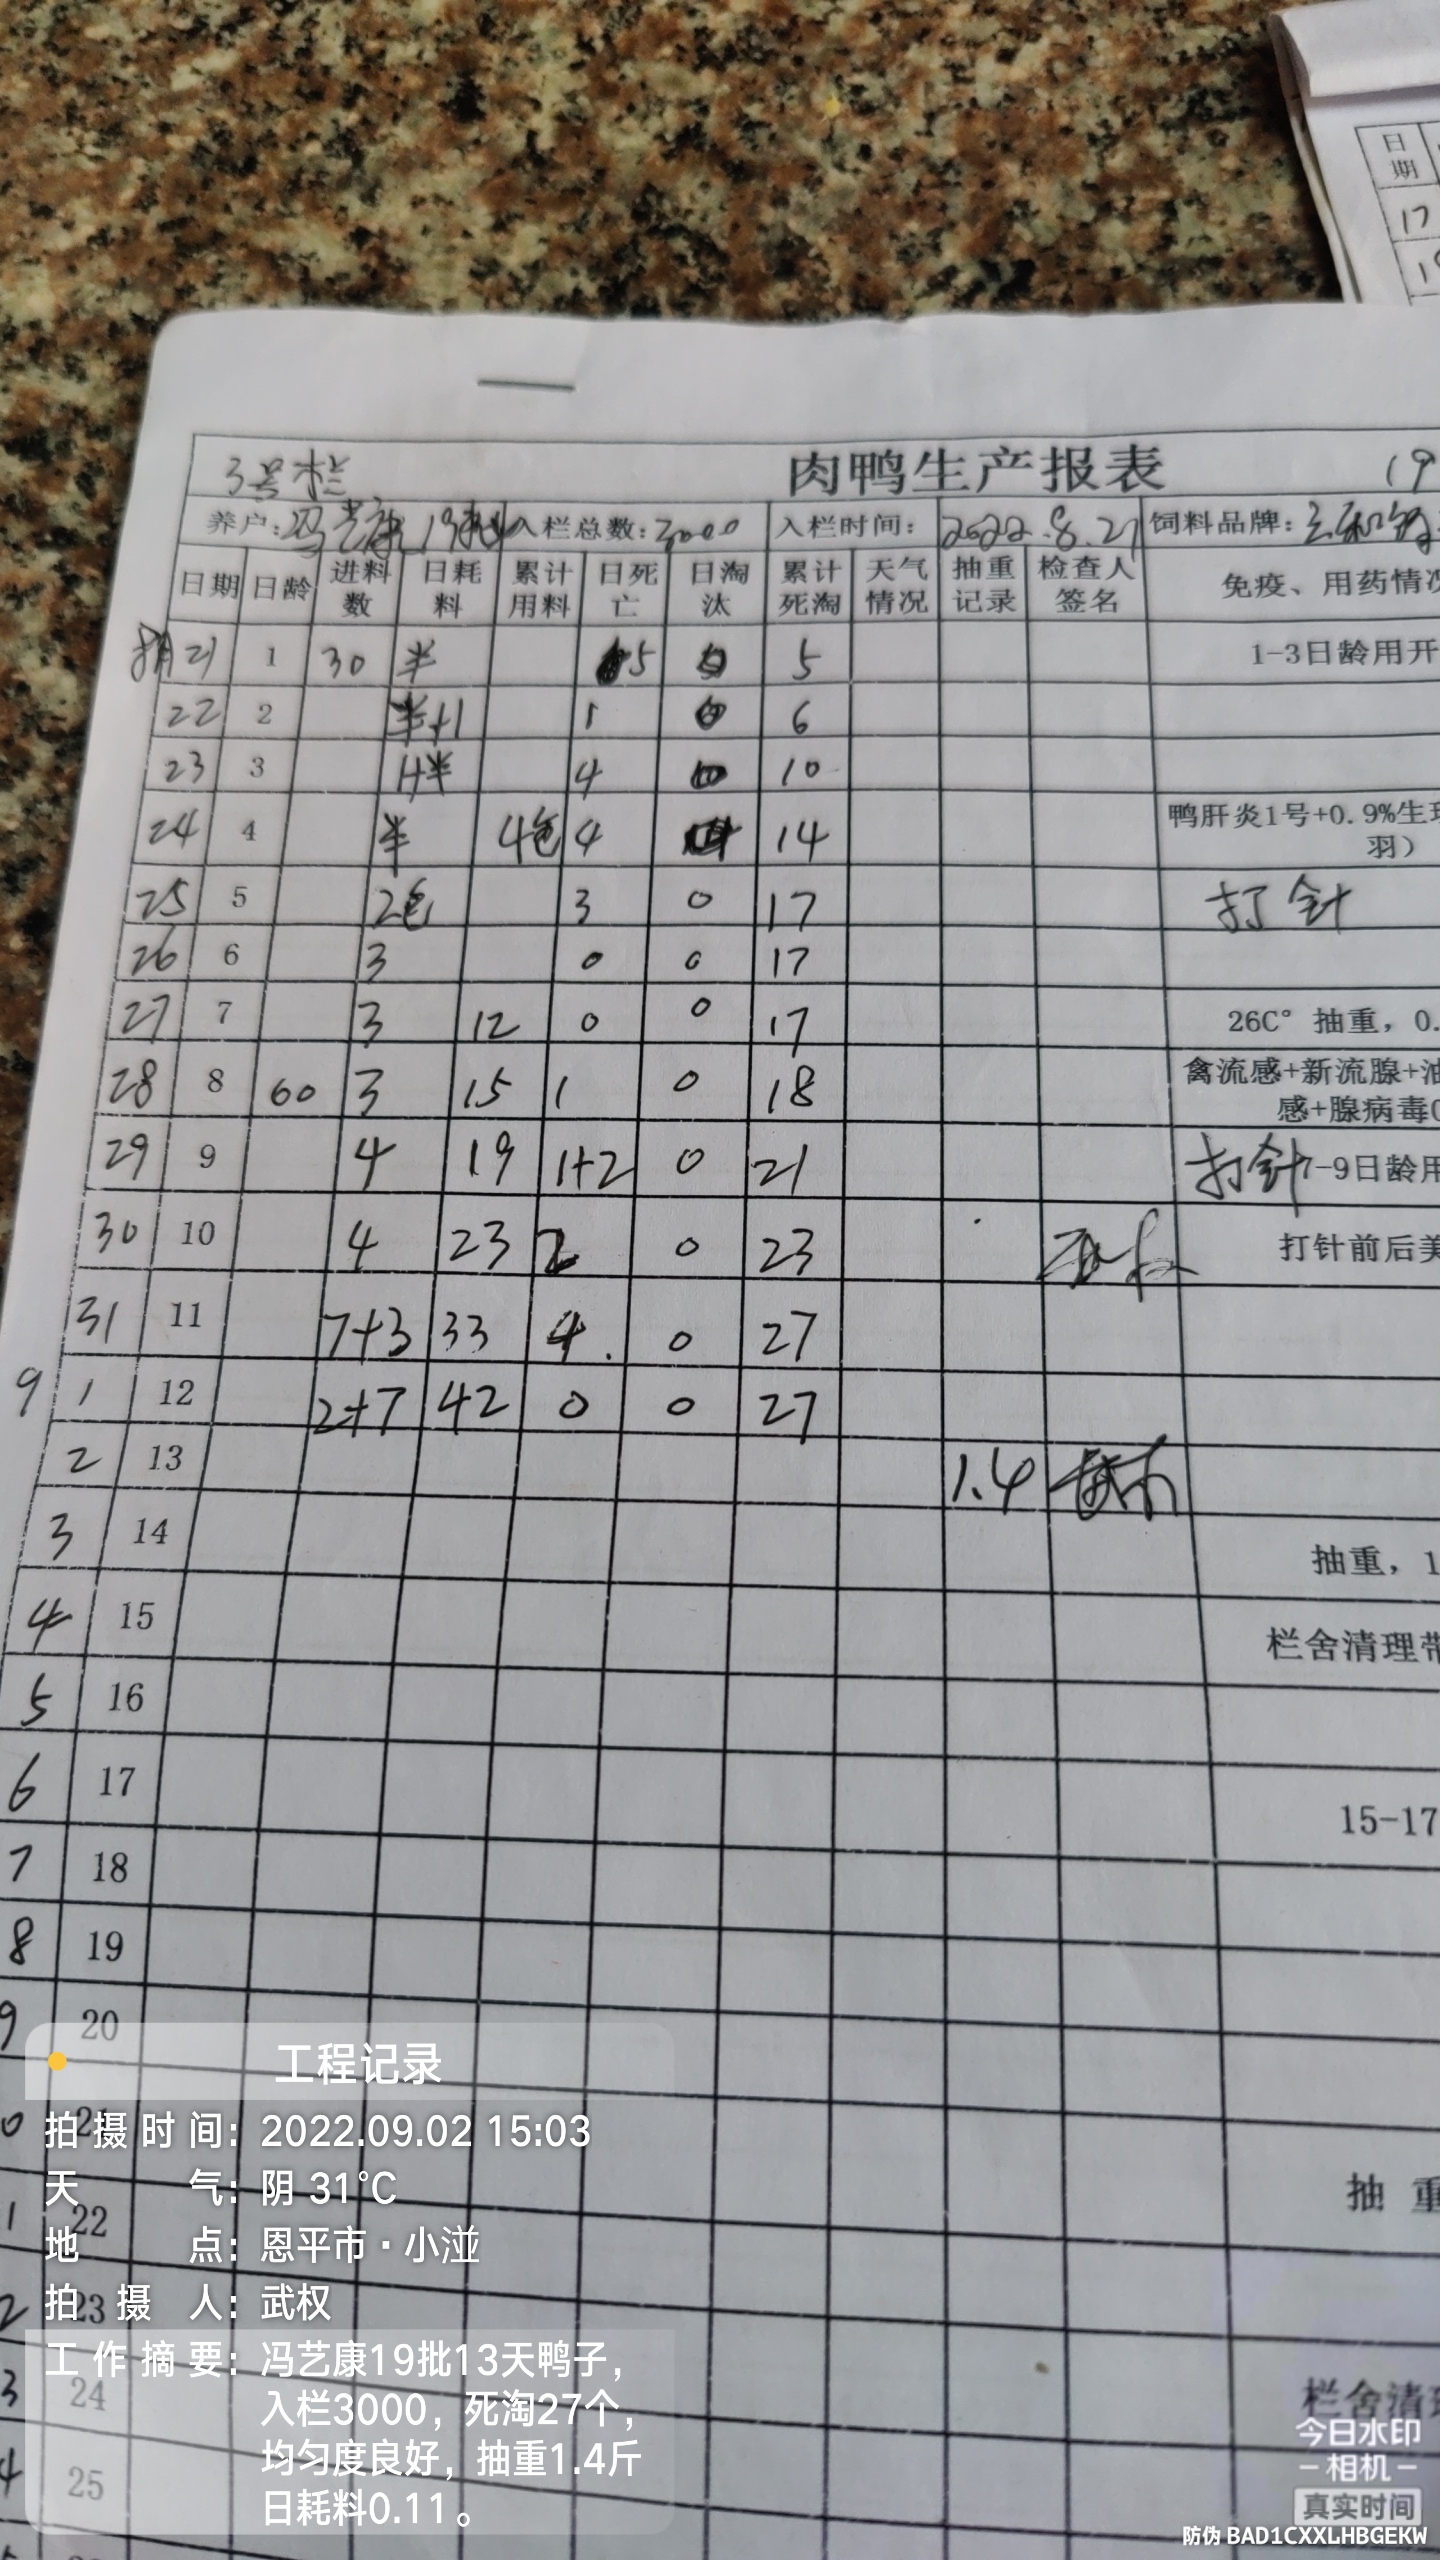 日期
17
3号栏 肉鸭生产报表 19
养户:冯艺康 19批 入栏总数:3000 入栏时间: 2022.8.21 饲料品牌:
日期 日龄 进料数 日耗料 累计用料 日死亡 日淘汰 累计死淘 天气情况 抽重记录 检查人签名 免疫、用药情况
8月21 1 30 半 5 0 5 1-3日龄用开
22 2 半+1 1 0 6
23 3 1+半 4 10
24 4 半 4包 4 14 鸭肝炎1号+0.9%生理
羽）
25 5 2包 3 0 17 打针
26 6 3 0 0 17
27 7 3 12 0 0 17 26C° 抽重，0.
28 8 60 3 15 1 0 18 禽流感+新流腺+油
感+腺病毒0
29 9 4 19 1+2 0 21 打针 7-9日龄用
30 10 4 23 2 0 23 打针前后美
31 11 7+3 33 4 0 27
9 1 12 2+7 42 0 0 27
2 13 1.4
3 14 抽重，1
4 15 栏舍清理带
5 16
6 17 15-17
7 18
8 19
9 20
0 21
1 22 抽重
2 23
3 24 栏舍清理
4 25
工程记录
拍摄时间：2022.09.02 15:03
天气：阴 31℃
地点：恩平市·小湴
拍摄人：武权
工作摘要：冯艺康19批13天鸭子，
入栏3000，死淘27个，
均匀度良好，抽重1.4斤
日耗料0.11。
今日水印
-相机-
真实时间
防伪 BAD1CXXLHBGEKW